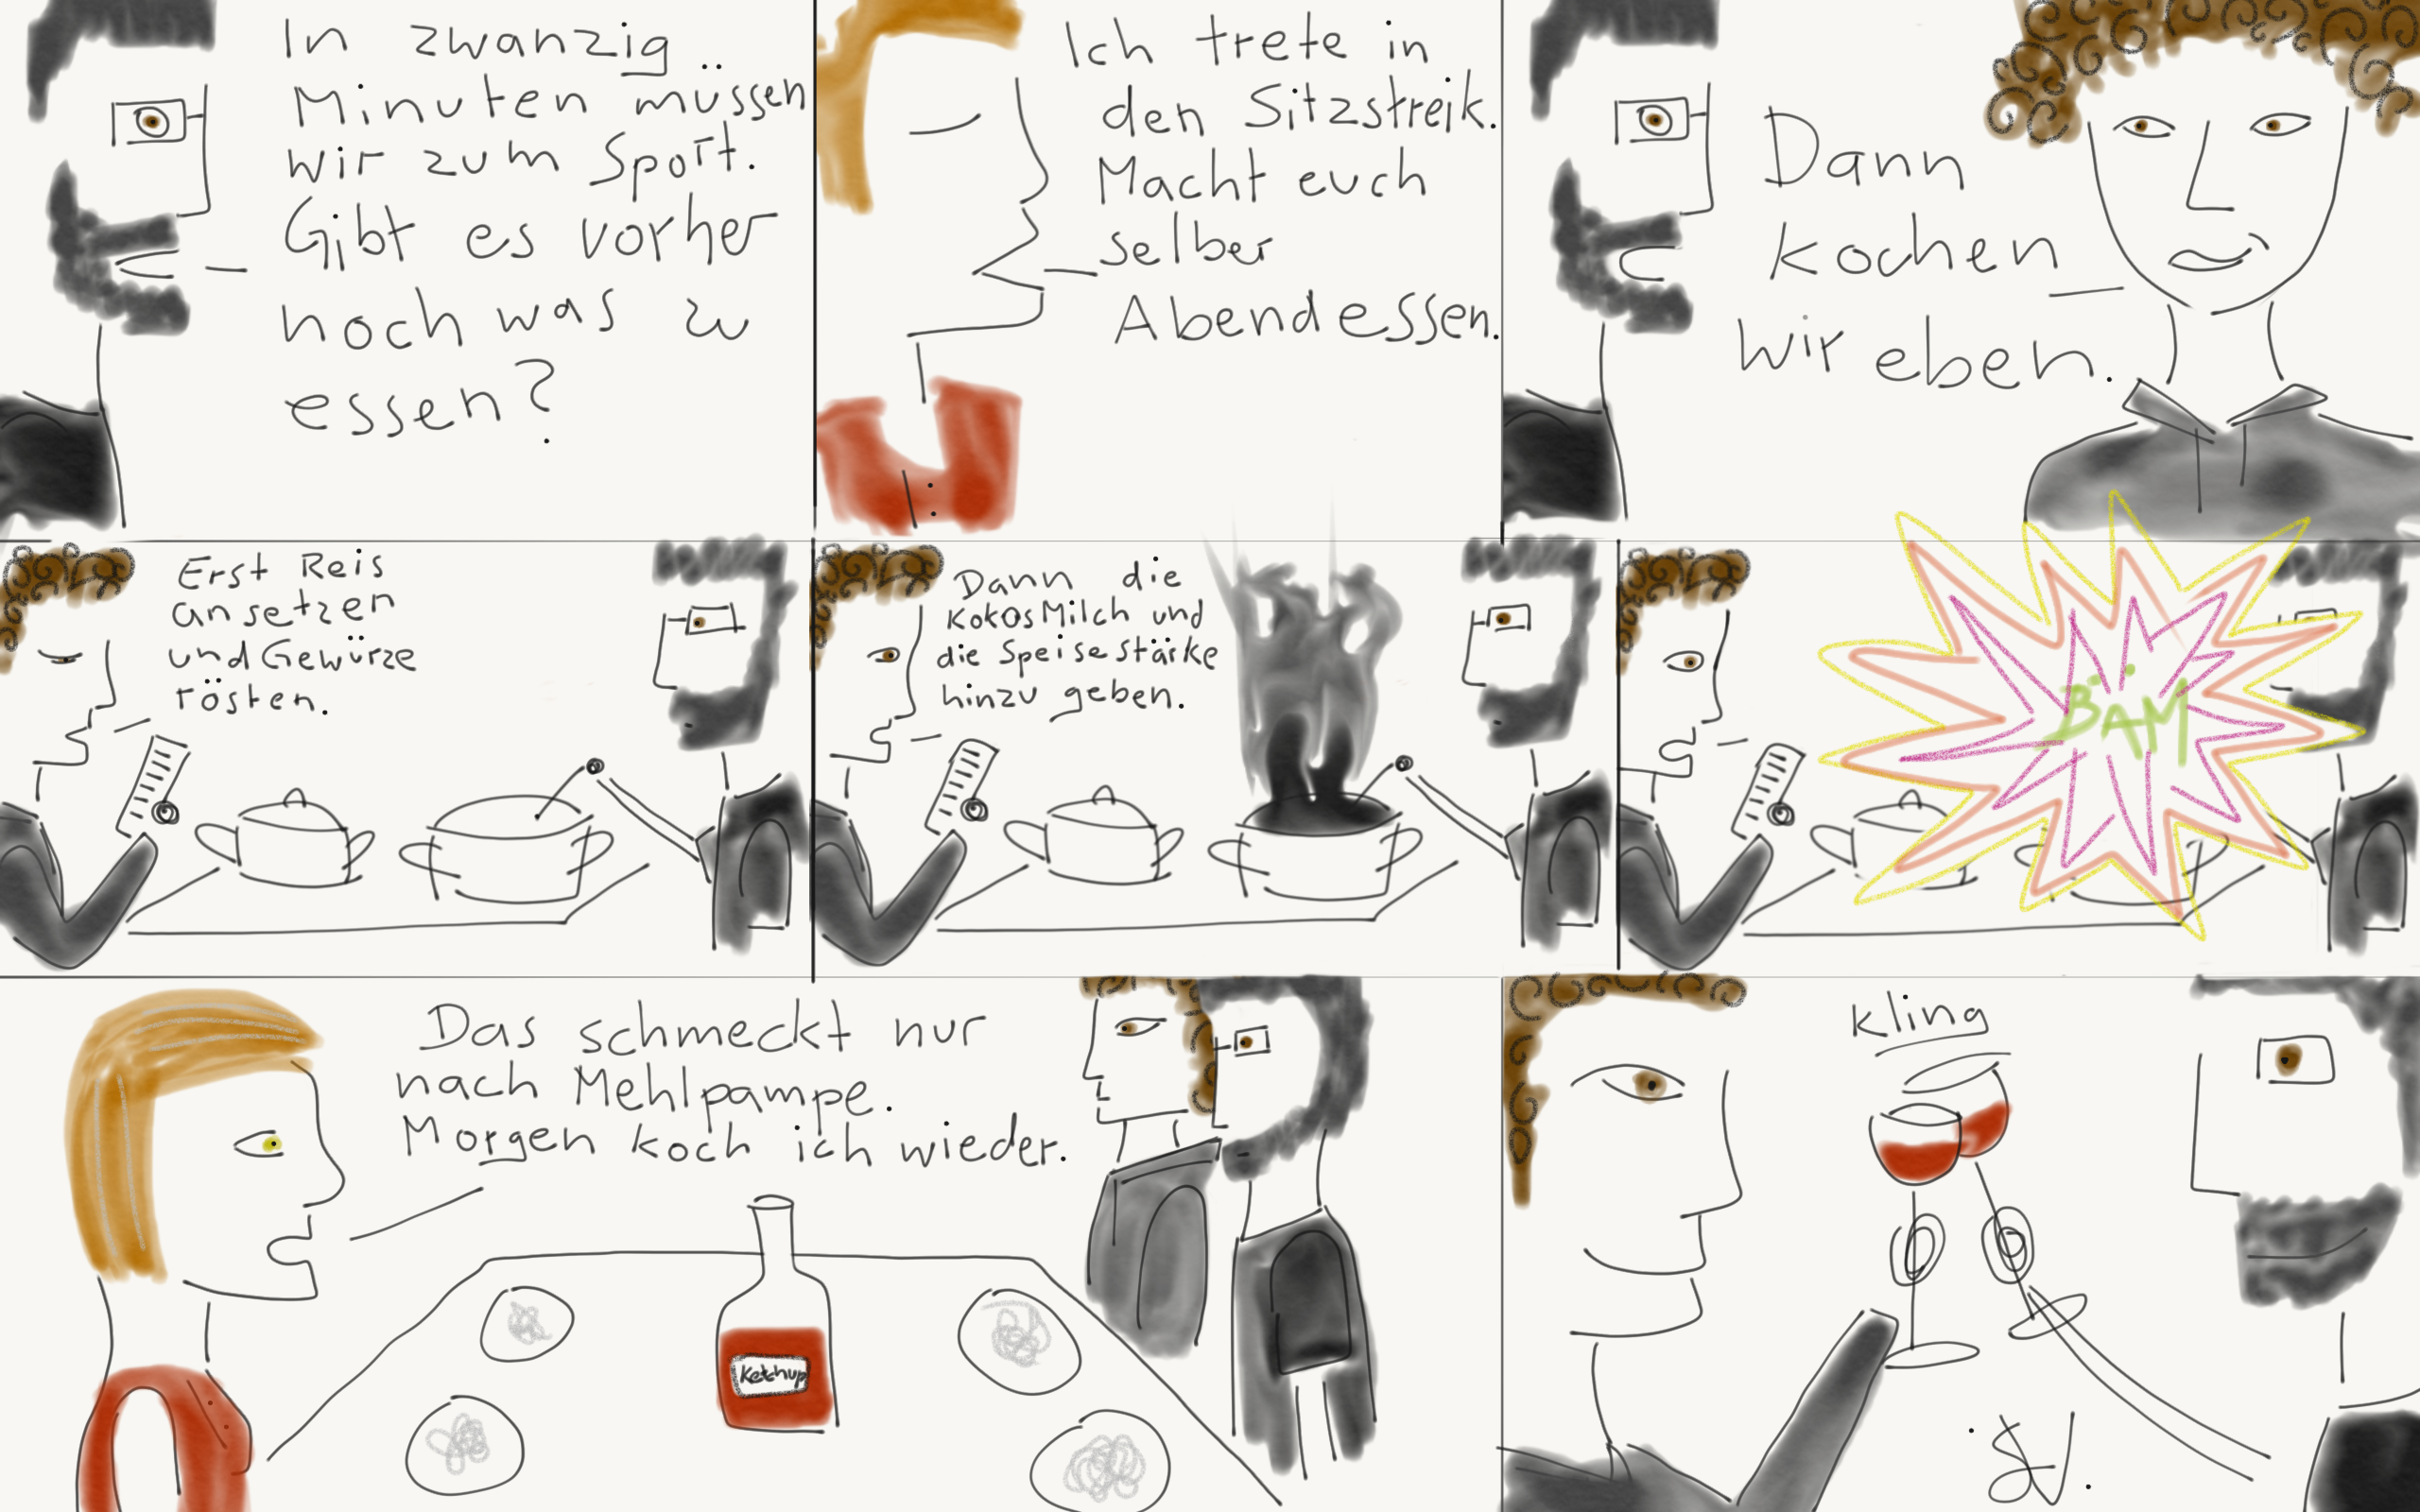 In zwanzig
Minuten müssen
wir zum Sport.
Gibt es vorher
noch was zu
essen?
Ich trete in
den Sitzstreik.
Macht euch
selber
Abendessen.
Dann
kochen
wir eben.
Erst Reis
ansetzen
und Gewürze
rösten.
Dann die
KokosMilch und
die Speisestärke
hinzu geben.
BÄM
Das schmeckt nur
nach Mehlpampe.
Morgen koch ich wieder.
Ketchup
kling